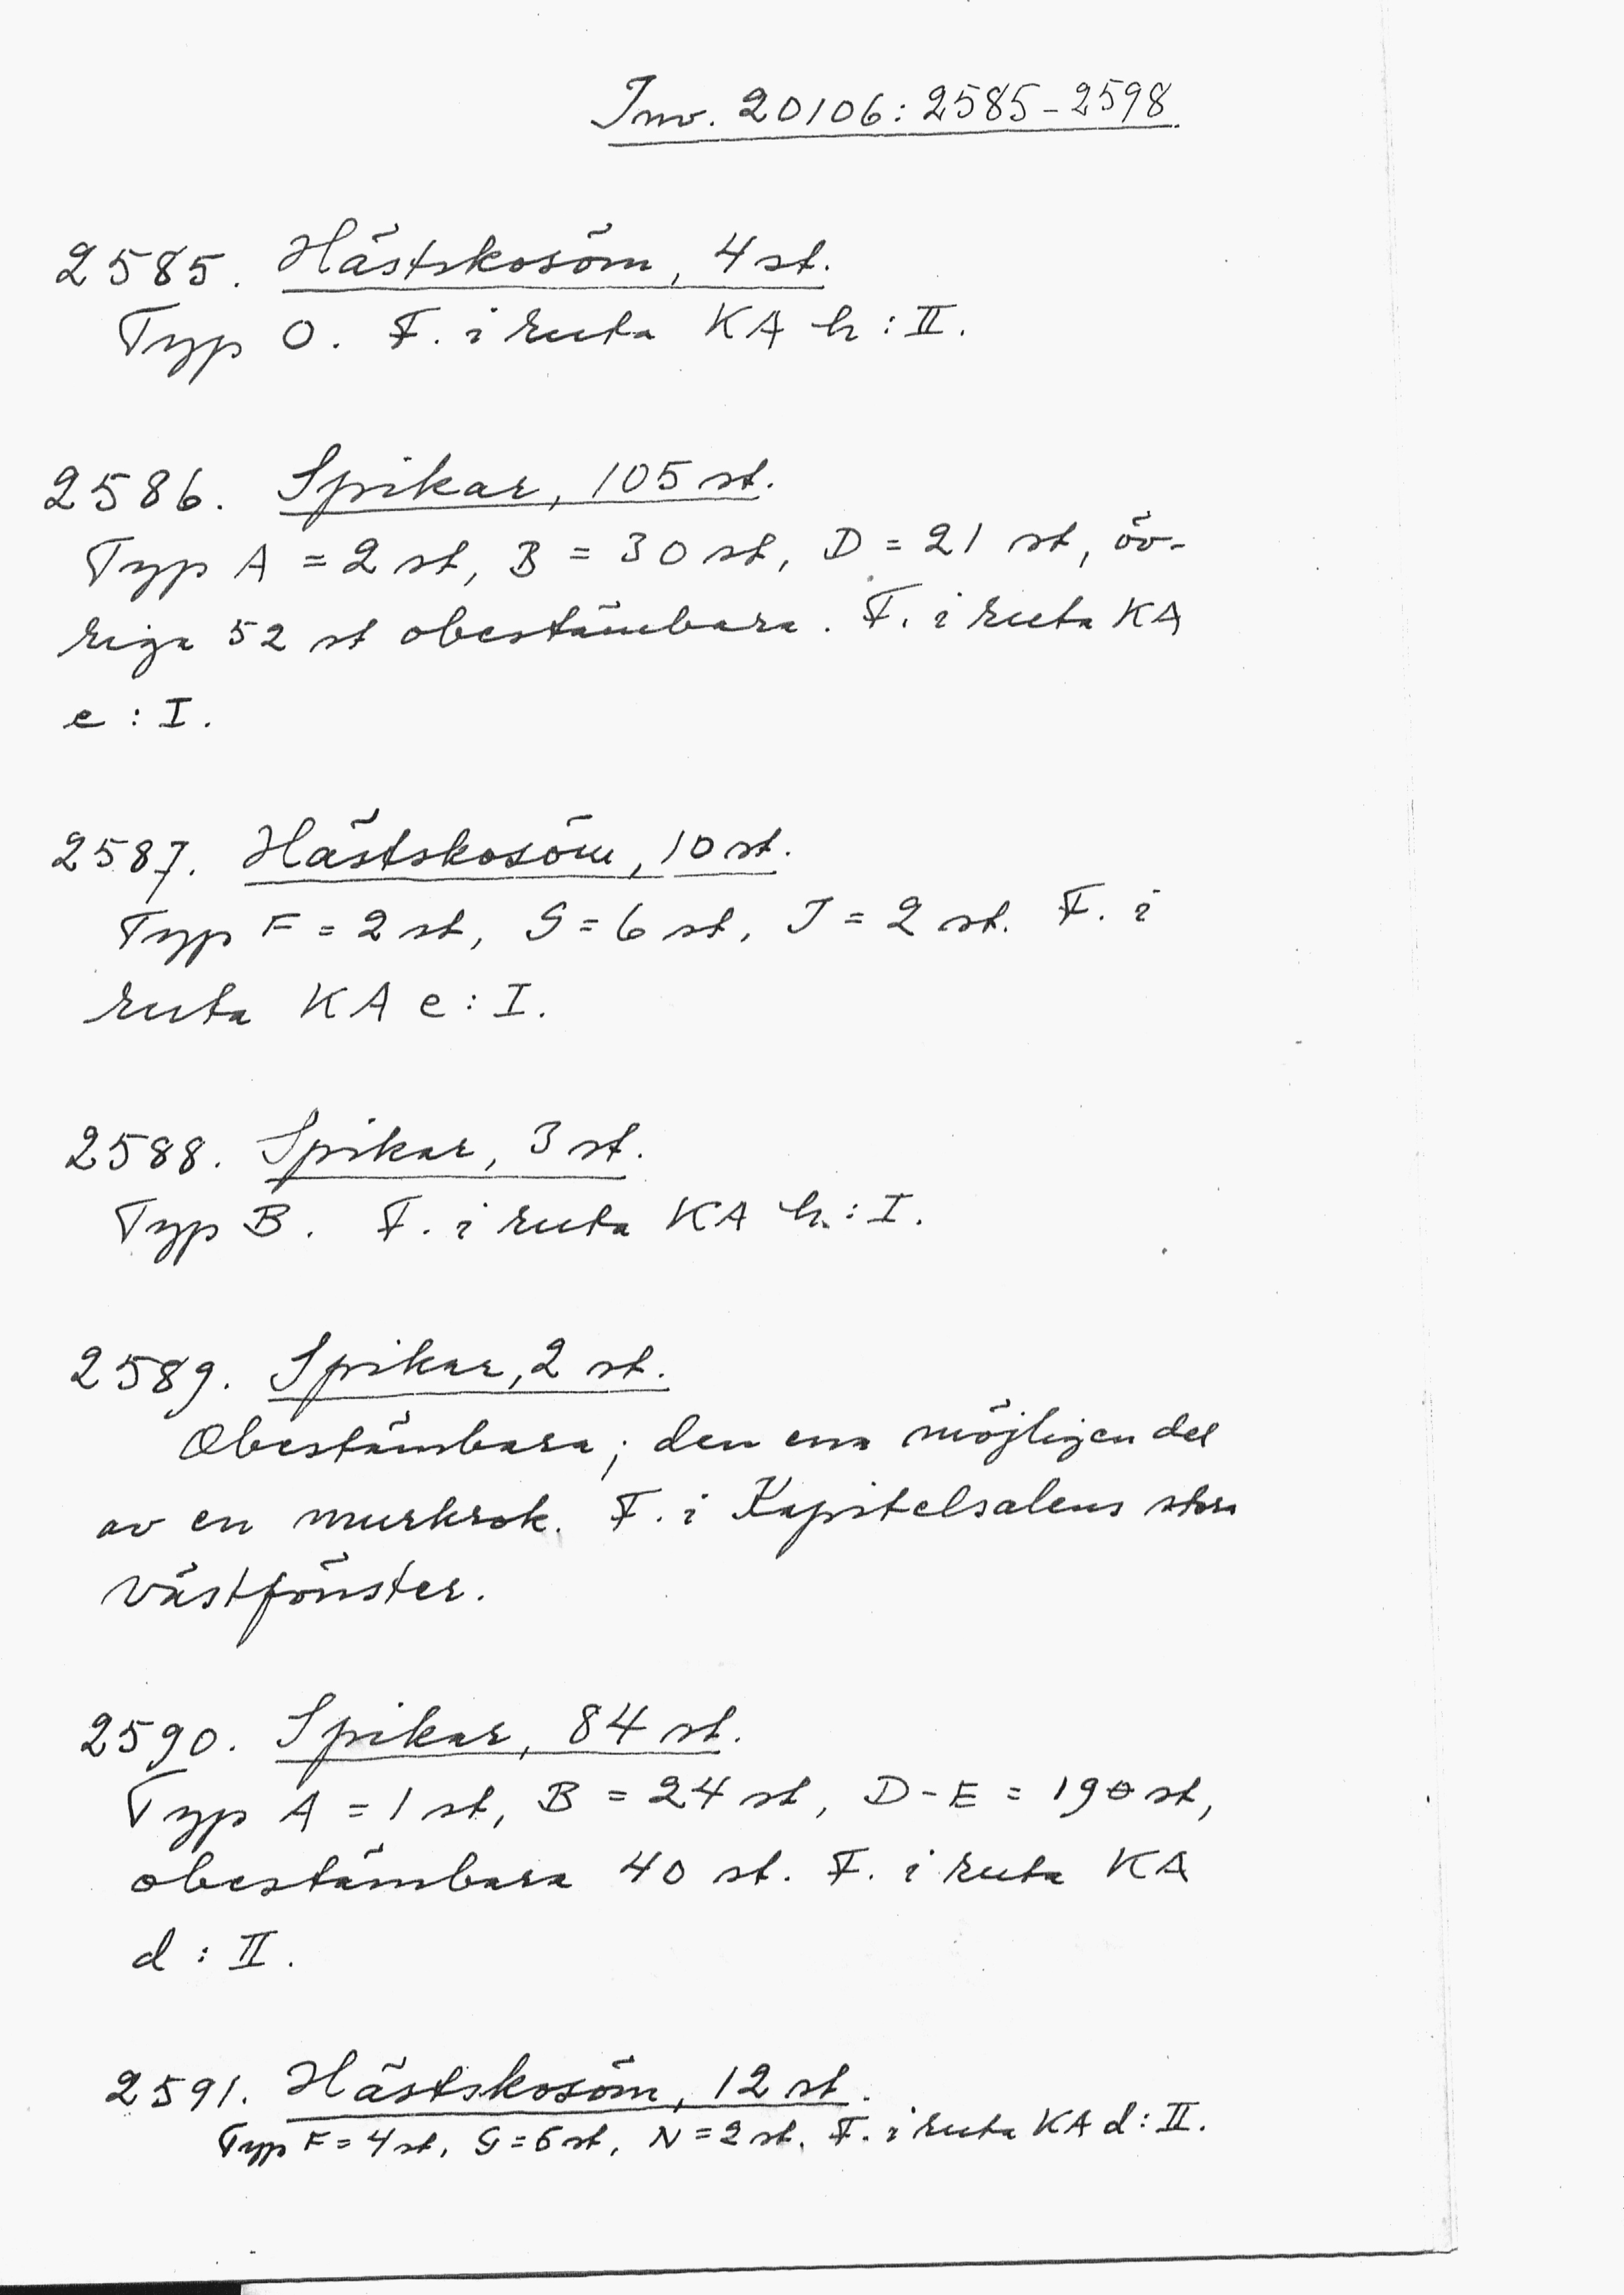 Inv. 20106: 2585-2598
2585. Hästskosöm, 4 st.
Typ O. F. i ruta KA h : II.
2586. Spikar, 105 st.
Typ A = 2 st, B = 30 st, D = 21 st, öv-
riga 52 st obestämbara. F. i ruta KA
e : I.
2587. Hästskosöm, 10 st.
Typ F = 2 st, G = 6 st, J = 2 st. F. i
ruta KA e : I.
2588. Spikar, 3 st.
Typ B. F. i ruta KA h : I.
2589. Spikar, 2 st.
Obestämbara; den ena möjligen del
av en murkrok. F. i Kapitelsalens stora
västfönster.
2590. Spikar, 84 st.
Typ A = 1 st, B = 24 st, D - E = 19 st,
obestämbara 40 st. F. i ruta KA
d : II.
2591. Hästskosöm, 12 st.
Typ F = 4 st, G = 6 st, N = 2 st. F. i ruta KA d : II.